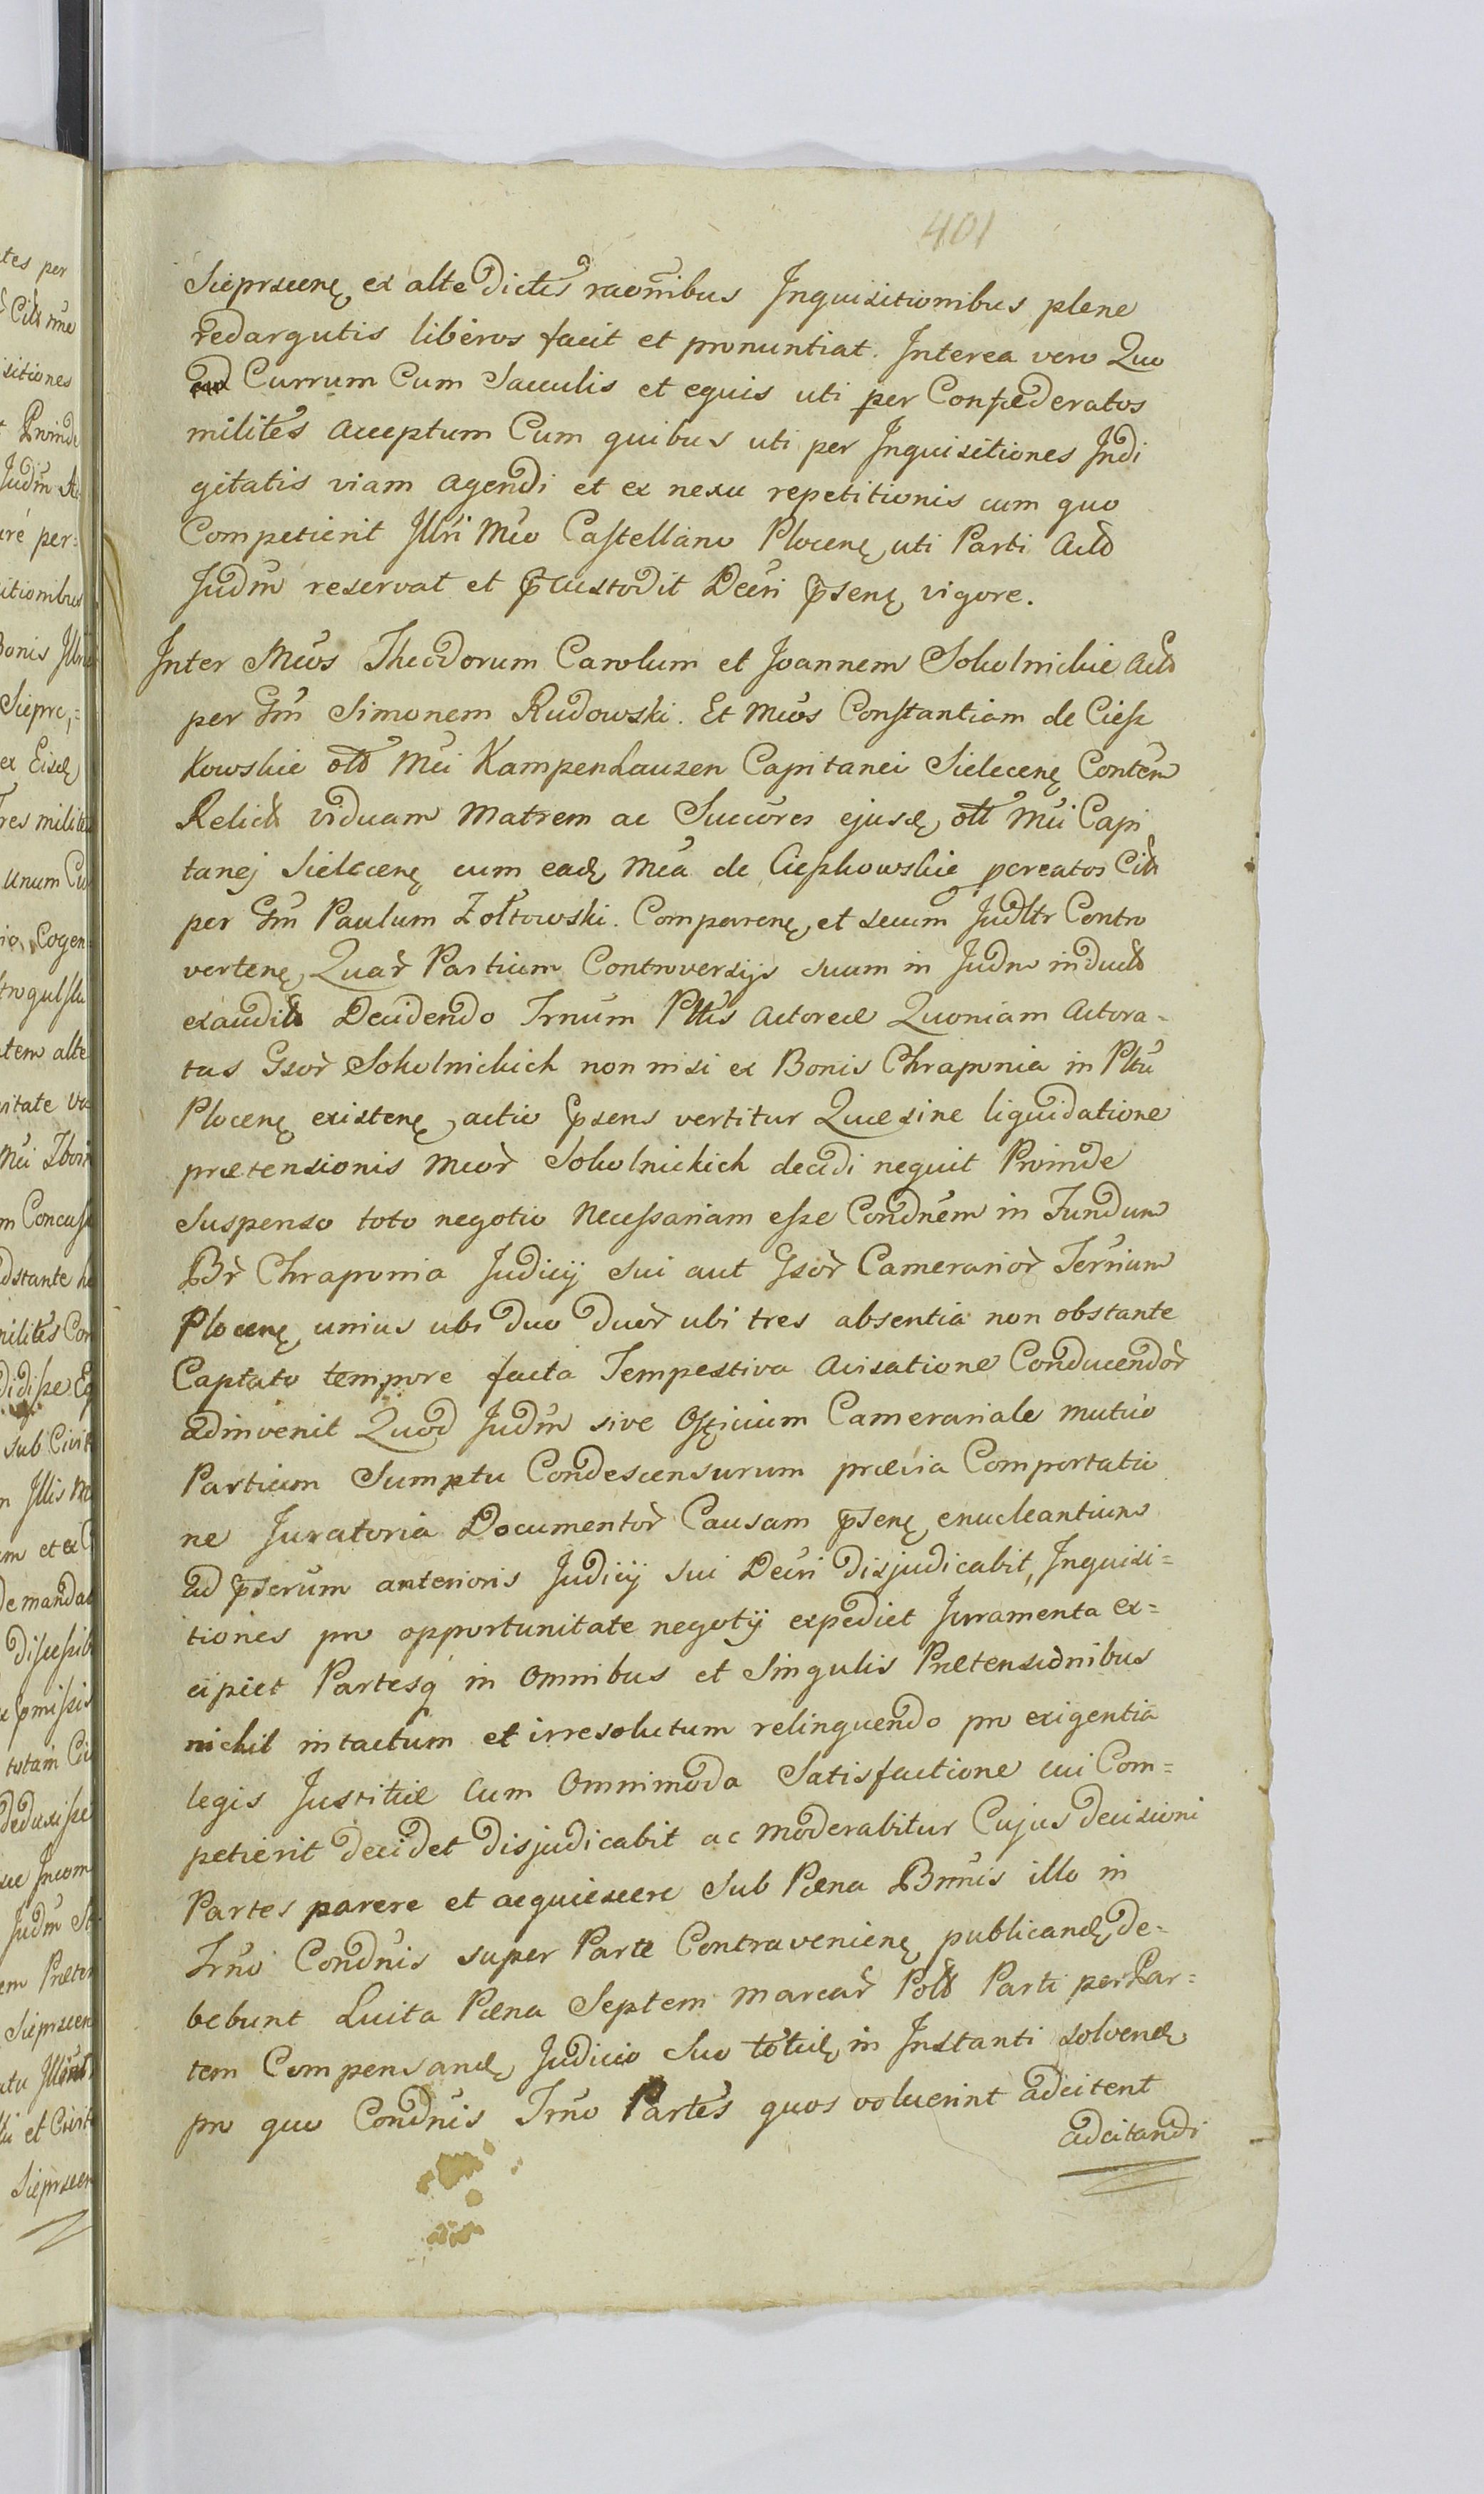 401
Sieprscenę ex alte Dictis raõnibus Inquisitionibus plene
redargutis liberos facit et pronuntiat. Interea vero Quo
ad Currum Cum Sacculis et equis uti per Confæderatos
milites acceptum Cum quibus uti per Inquisitiones Indi
gitatis viam agendi et ex nexu repetitionis cum quo
Competierit Illri Mco Castellano Plocenę uti Parti Actõ
Judm reservat et p̃custodit Decri p̃senę vigore.
Inter Mcos Theodorum Carolum et Joannem Sokolnickie Actõ
per Gm Simonem Rudowski. Et Mcos Constantiam de Ciesz
kowskie olõ Mci Kampenhauzen Capitanei Sielecenę Contem
Relictã viduam Matrem ac Succores ejusdę olõ Mci Capi
tanej Sielecenę cum eadę Mca de Cieszkowskie pereatos Citõ
per Gm Paulum Zołtowski. Comparenę et secum Judltr Contro
vertenę Quar Partium Controversijs suum in Judm inductõ
exauditõ Decidendo Trnum Pttis Actoreæ Quoniam Actora-
tus Gsor Sokolnickich non nisi ex Bonis Chraponia in Pttu
Plocenę existenę actio p̃sens vertitur Quæ sine liquidatione
prætensionis Mcor Sokolnickich decidi nequit Proinde
suspenso toto negotio Necessariam esse Condnem in Fundum
Br Chraponia Judicij sui aut Gsor Camerarior Terrium
Plocenę unius ubi duo duor ubi tres absentia non obstante
Captato tempore facta Tempestiva Avisatione Conducendor
adinvenit Quod Judm sive Officium Camerariale mutuo
Partium Sumptu Condescensurum prævia Comportatio
ne Juratoria Documentor Causam p̃senę enucleantium
ad p̃serum anterioris Judicij sui Decri disjudicabit, Inquisi=
tiones pro opportunitate negotij expediet Juramenta ex=
cipiet Partesq in Omnibus et Singulis Prætensionibus
nichil intactum et irresolutum relinquendo pro exigentia
legis Justitiæ Cum Omnimoda Satisfactione cui Com=
petierit decidet disjudicabit ac moderabitur Cujus decisioni
Partes parere et acquiescere sub Pæna Bnnis illo in
Trno Condnis super Parte Contravenienę publicandę de-
bebunt Luita Pæna Septem marcar Polõ Parti per Par=
tem Compensandę Judicio Suo totidę in Instanti solvendę
pro quo Condnis Trno Partes quos voluerint adcitent
adcitandi